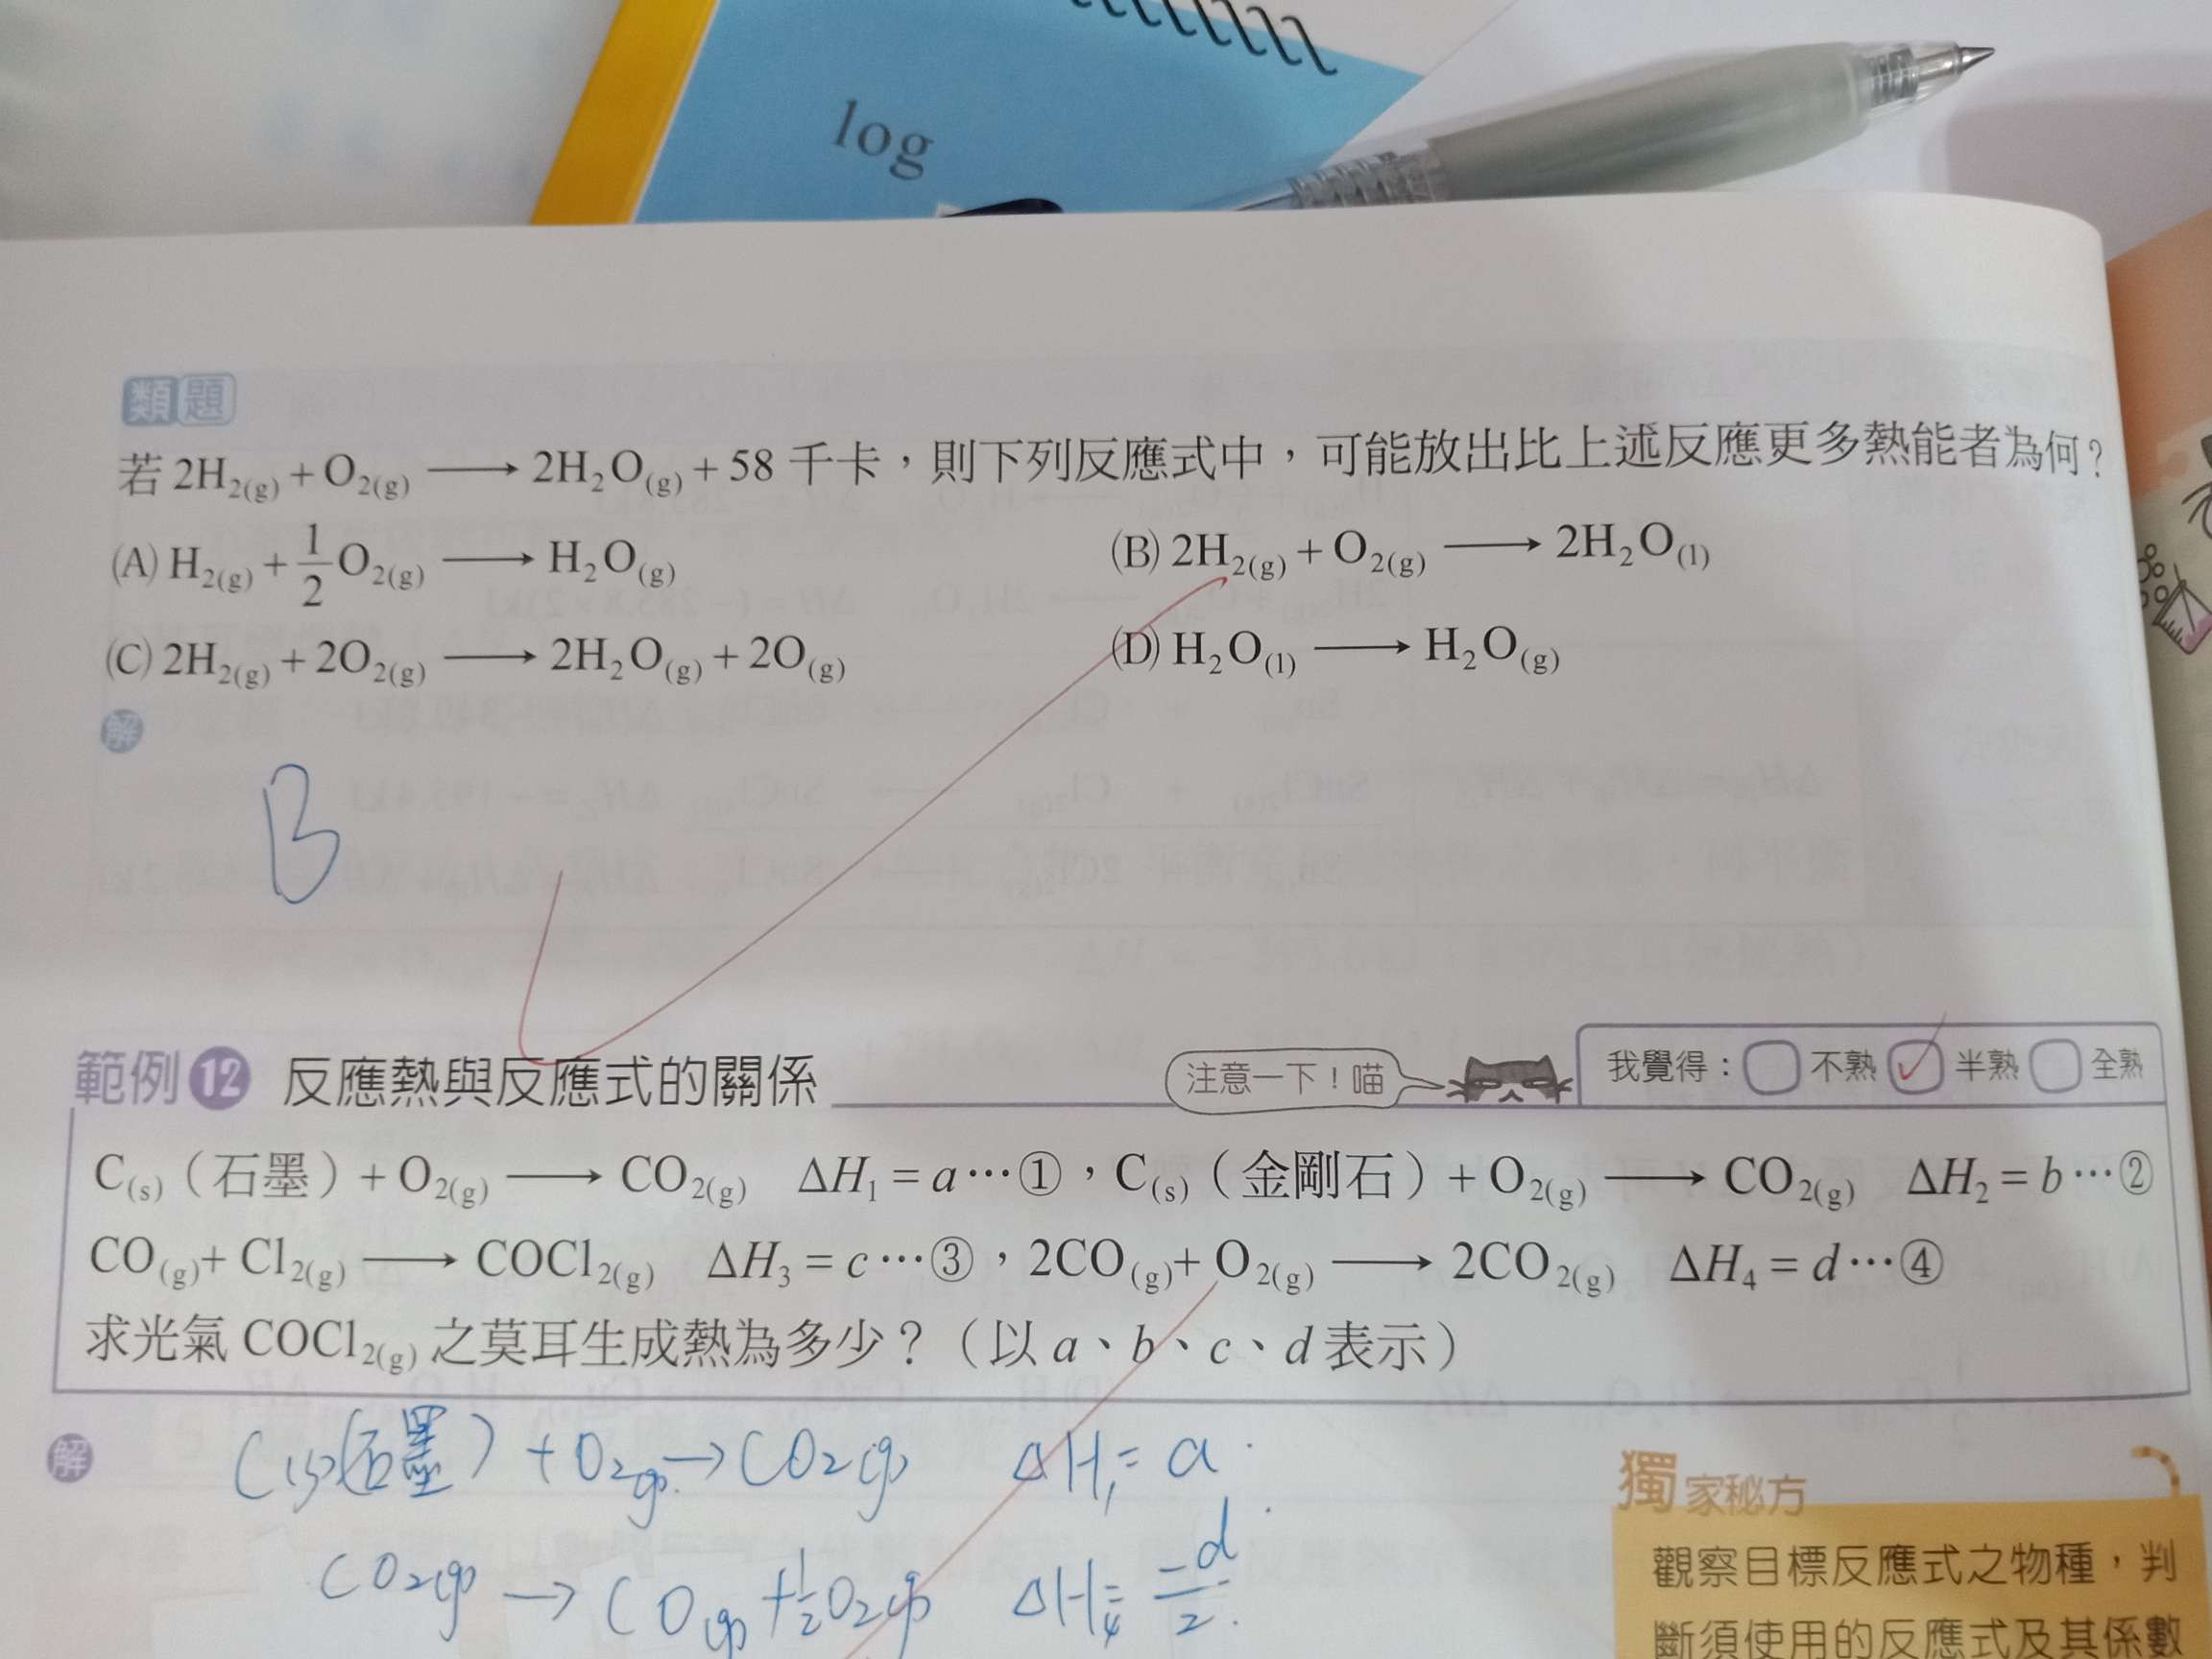 log
類題
若 2H₂(g) + O₂(g) ⟶ 2H₂O(g) + 58 千卡，則下列反應式中，可能放出比上述反應更多熱能者為何？
(A) H₂(g) + 1/2 O₂(g) ⟶ H₂O(g) (B) 2H₂(g) + O₂(g) ⟶ 2H₂O(l)
(C) 2H₂(g) + 2O₂(g) ⟶ 2H₂O(g) + 2O(g) (D) H₂O(l) ⟶ H₂O(g)
解
B
範例 12 反應熱與反應式的關係 注意一下！喵 我覺得： 不熟 ✓ 半熟 全熟
C(s)（石墨）+ O₂(g) ⟶ CO₂(g) ΔH₁ = a…①，C(s)（金剛石）+ O₂(g) ⟶ CO₂(g) ΔH₂ = b…②
CO(g) + Cl₂(g) ⟶ COCl₂(g) ΔH₃ = c…③，2CO(g) + O₂(g) ⟶ 2CO₂(g) ΔH₄ = d…④
求光氣 COCl₂(g) 之莫耳生成熱為多少？（以 a、b、c、d 表示）
解 C(s)(石墨) + O₂(g) → CO₂(g) ΔH₁ = a
CO₂(g) → CO(g) + 1/2 O₂(g) ΔH₄ = -d/2
獨家秘方
觀察目標反應式之物種，判
斷須使用的反應式及其係數